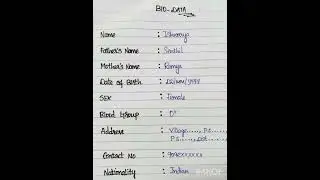 BIO-DATA
Name : Ishwarya
Father's Name : Senthil
Mother's Name : Ramya
Date of Birth :
SEX : Female
Blood Group : O⁺
Address : Village....... P.O......
P.S....... Dist.......
Contact No :
Nationality : Indian